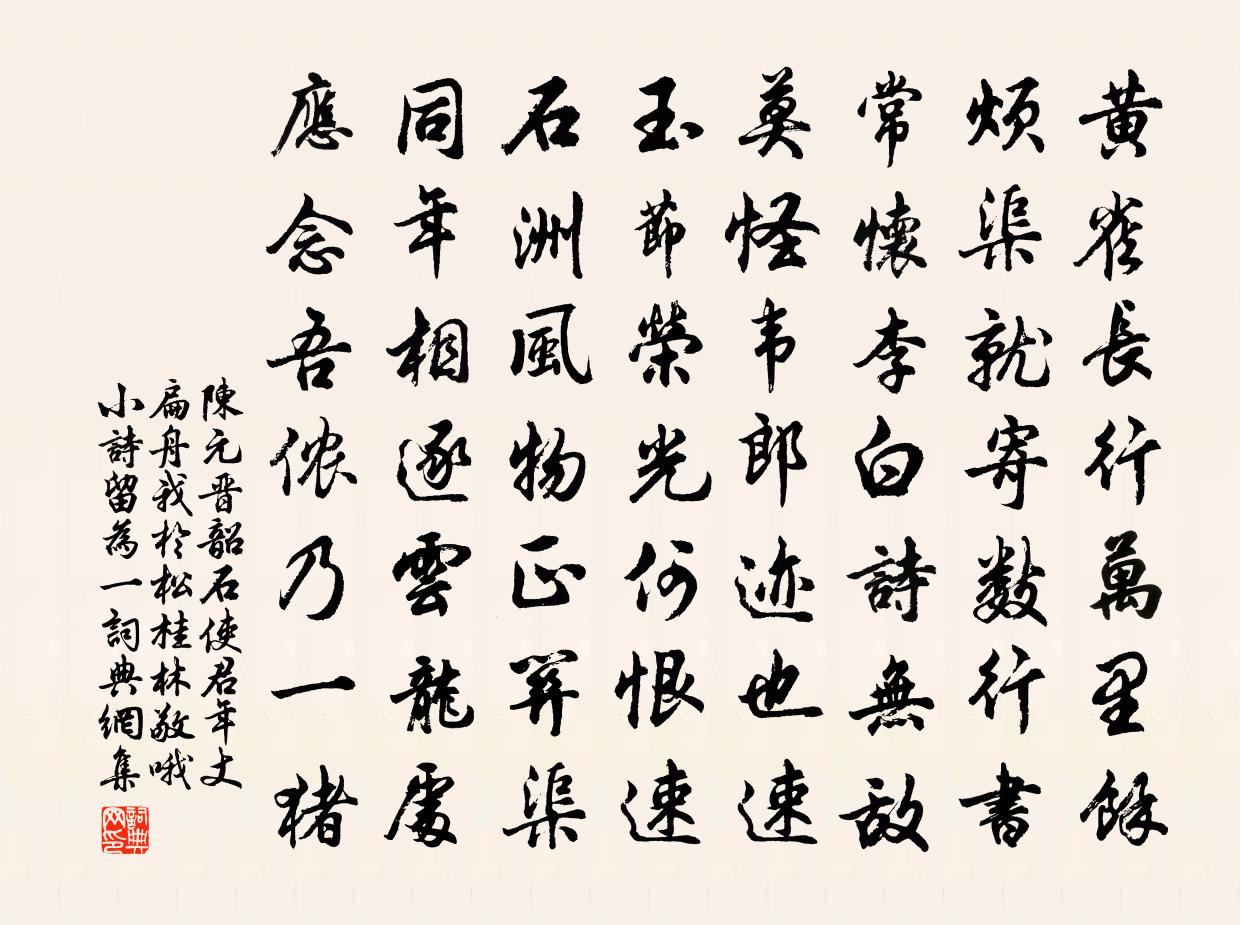 黄雀長行萬里餘
煩渠就寄數行書
常懷李白詩無敌
莫怪韦郎迹也速
玉節榮光何恨速
石洲風物正開渠
同年相逐雲龍處
應念吾侬乃一猪
陳元晋韶石使君年丈
扁舟我於松桂林敬哦
小詩留為一詞典網集
詞典网印